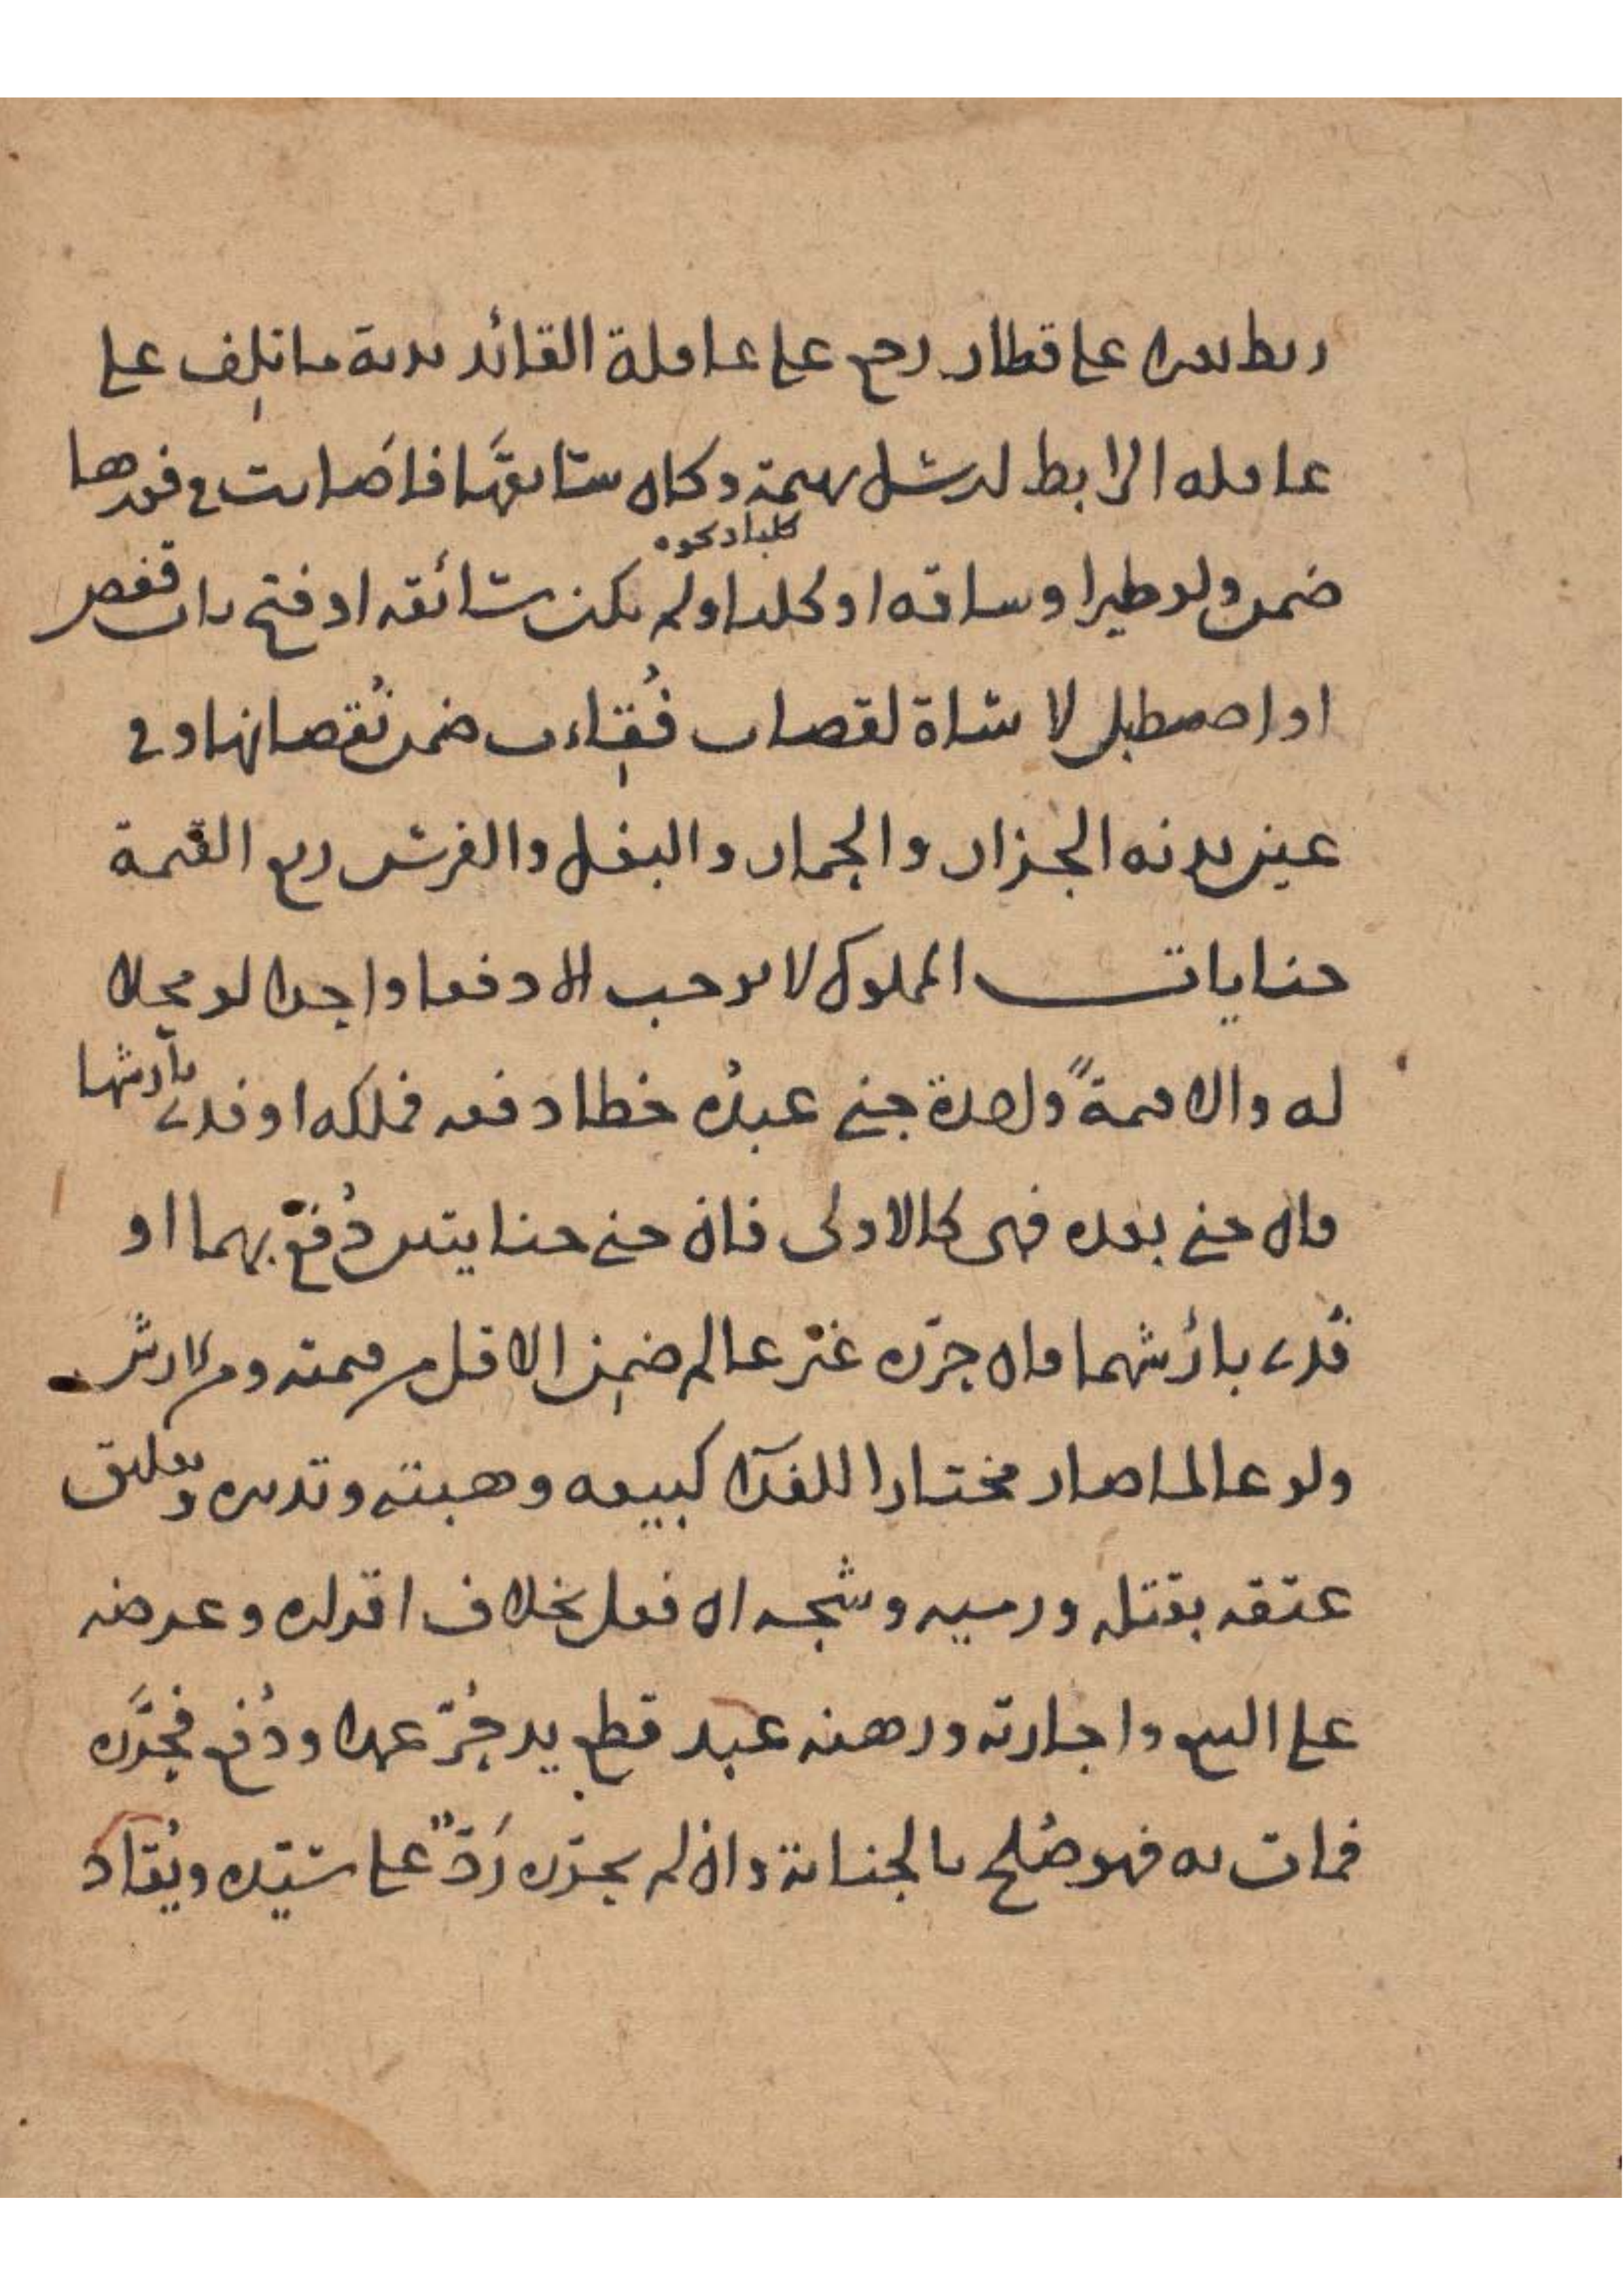 ربط بعيرا على قطار رجع على عاقلة القائد بدية ما تلف على
عاقلة الرابط لو ارسل بهيمة وكان سائقها فاصابت في فورها
ضمن ولو طيرا وساقه او كلبا ولم يكن سائقه او فتح باب قفص
كلبا دكوه
او اصطبل لا شاة لقصاب فقئت ضمن نقصانها وفي
عين بدنة الجزار والحمار والبغل والفرس ربع القيمة
جنايات المملوك لا توجب الا دفعا واحدا لو محلا
له والا قيمة واحدة جنى عبده خطأ دفعه فملكه او فدى بأرشها
فان جنى بعده فهي كالاولى فان جنى جنايتين دفع بهما او
فدى بأرشهما فان حرره غير عالم ضمن الاقل من قيمته ومن الارش
ولو عالما صار مختارا للفداء كبيعه وهبته وتدبيره وتعليق
عتقه بقتله ورميه وشجه ان فعل بخلاف اقراره وعرضه
على البيع واجارته ورهنه عبد قطع يد حر عمدا ودفع فحرره
فمات به فهو صلح بالجناية وان لم يحرره رد على سيده ويقاد